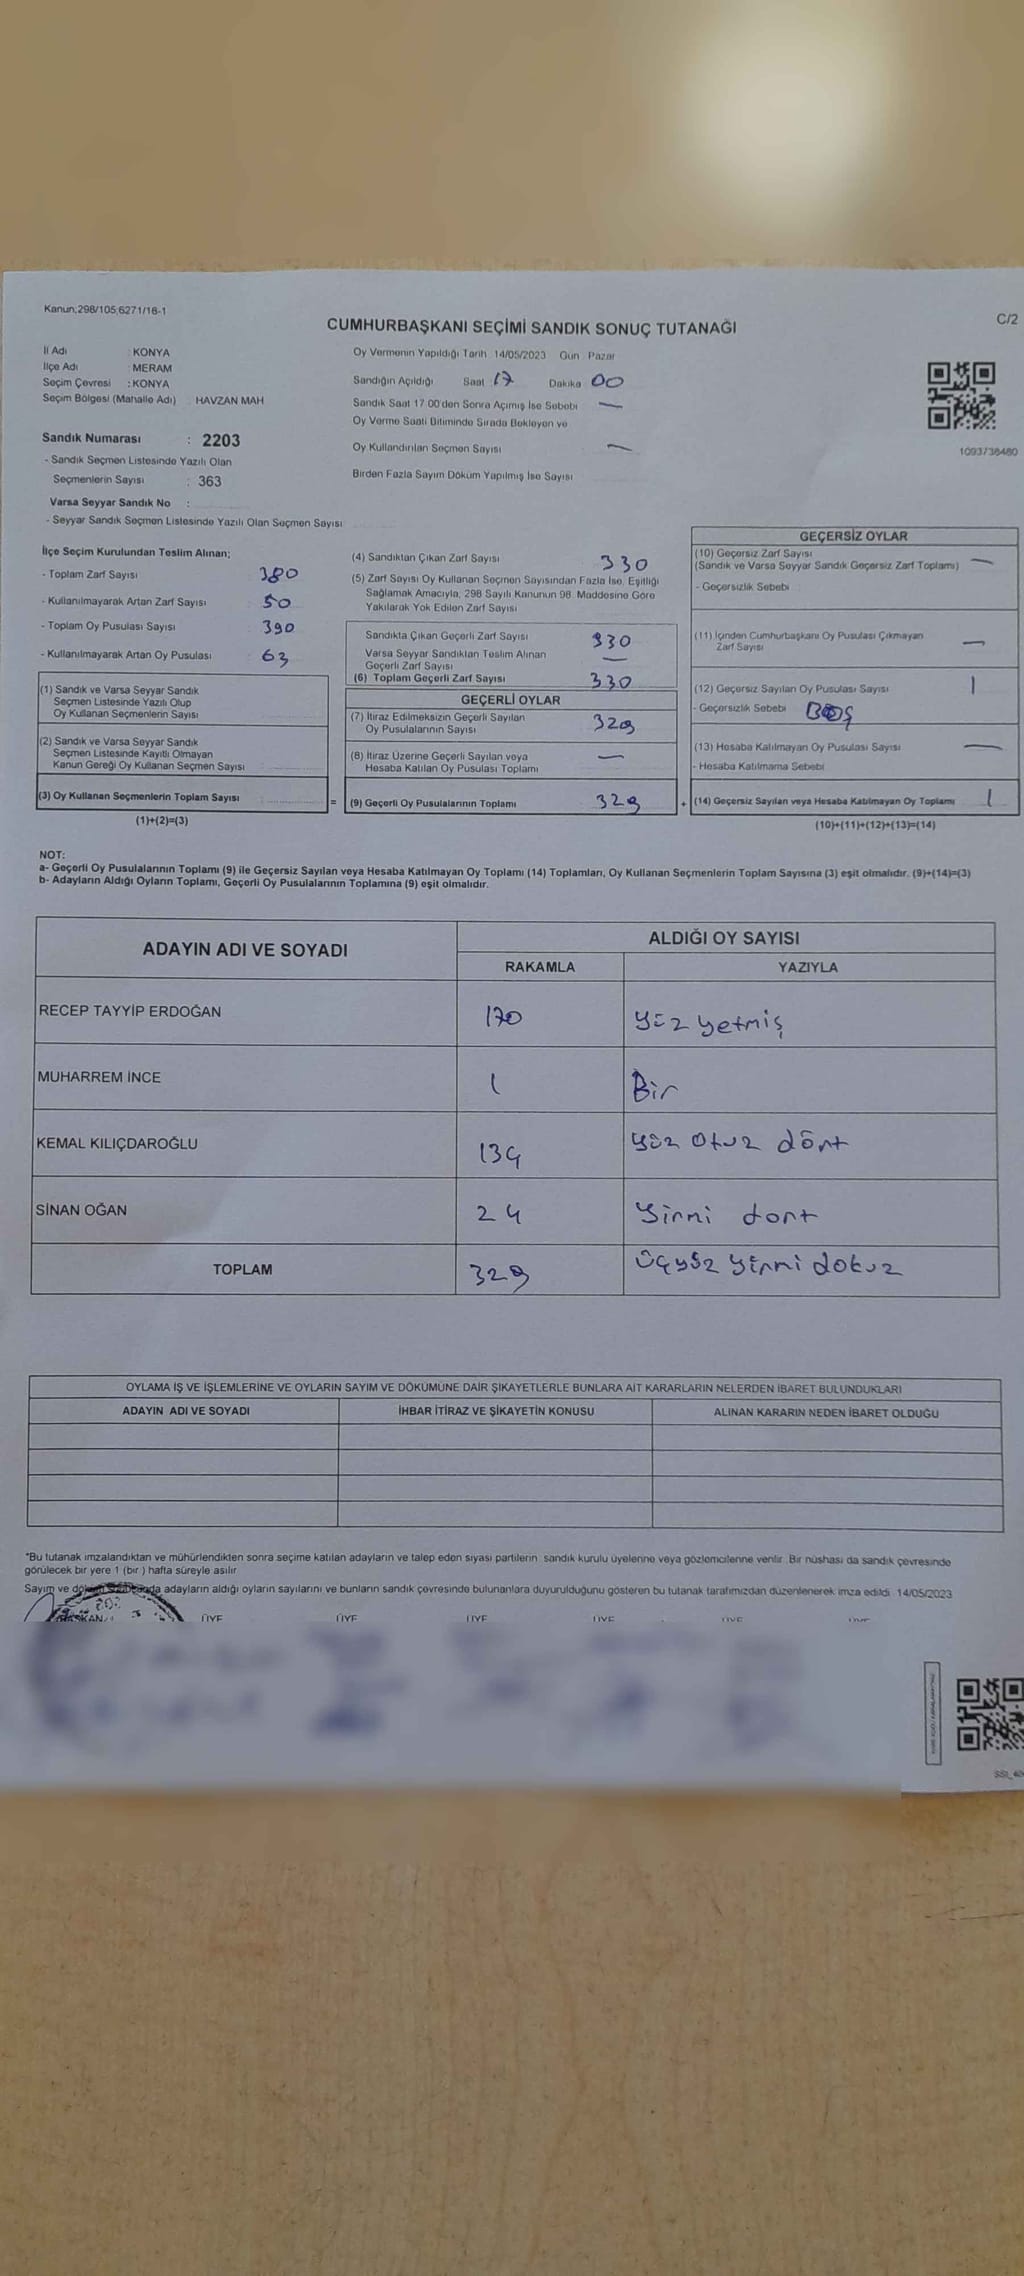 Kanun;298/105,6271/16-1
CUMHURBAŞKANI SEÇİMİ SANDIK SONUÇ TUTANAĞI
C/2
İl Adı : KONYA
İlçe Adı : MERAM
Seçim Çevresi : KONYA
Seçim Bölgesi (Mahalle Adı) : HAVZAN MAH
Sandık Numarası : 2203
- Sandık Seçmen Listesinde Yazılı Olan
Seçmenlerin Sayısı : 363
Varsa Seyyar Sandık No :
- Seyyar Sandık Seçmen Listesinde Yazılı Olan Seçmen Sayısı
Oy Vermenin Yapıldığı Tarih 14/05/2023 Gün Pazar
Sandığın Açıldığı Saat 17 Dakika 00
Sandık Saat 17:00'den Sonra Açımış İse Sebebi —
Oy Verme Saati Bitiminde Sırada Bekleyen ve
Oy Kullandırılan Seçmen Sayısı —
Birden Fazla Sayım Döküm Yapılmış İse Sayısı
1093738480
İlçe Seçim Kurulundan Teslim Alınan;
- Toplam Zarf Sayısı 380
- Kullanılmayarak Artan Zarf Sayısı 50
- Toplam Oy Pusulası Sayısı 390
- Kullanılmayarak Artan Oy Pusulası 63
(1) Sandık ve Varsa Seyyar Sandık
Seçmen Listesinde Yazılı Olup
Oy Kullanan Seçmenlerin Sayısı
(2) Sandık ve Varsa Seyyar Sandık
Seçmen Listesinde Kayıtlı Olmayan
Kanun Gereği Oy Kullanan Seçmen Sayısı
(3) Oy Kullanan Seçmenlerin Toplam Sayısı
(1)+(2)=(3)
=
(4) Sandıktan Çıkan Zarf Sayısı 330
(5) Zarf Sayısı Oy Kullanan Seçmen Sayısından Fazla İse, Eşitliği
Sağlamak Amacıyla, 298 Sayılı Kanunun 98. Maddesine Göre
Yakılarak Yok Edilen Zarf Sayısı
Sandıkta Çıkan Geçerli Zarf Sayısı 330
Varsa Seyyar Sandıktan Teslim Alınan
Geçerli Zarf Sayısı —
(6) Toplam Geçerli Zarf Sayısı 330
GEÇERLİ OYLAR
(7) İtiraz Edilmeksizin Geçerli Sayılan
Oy Pusulalarının Sayısı 329
(8) İtiraz Üzerine Geçerli Sayılan veya
Hesaba Katılan Oy Pusulası Toplamı —
(9) Geçerli Oy Pusulalarının Toplamı 329
+
GEÇERSİZ OYLAR
(10) Geçersiz Zarf Sayısı
(Sandık ve Varsa Seyyar Sandık Geçersiz Zarf Toplamı) —
- Geçersizlik Sebebi
(11) İçinden Cumhurbaşkanı Oy Pusulası Çıkmayan
Zarf Sayısı —
(12) Geçersiz Sayılan Oy Pusulası Sayısı 1
- Geçersizlik Sebebi BOŞ
(13) Hesaba Katılmayan Oy Pusulası Sayısı —
- Hesaba Katılmama Sebebi
(14) Geçersiz Sayılan veya Hesaba Katılmayan Oy Toplamı 1
(10)+(11)+(12)+(13)=(14)
NOT:
a- Geçerli Oy Pusulalarının Toplamı (9) ile Geçersiz Sayılan veya Hesaba Katılmayan Oy Toplamı (14) Toplamları, Oy Kullanan Seçmenlerin Toplam Sayısına (3) eşit olmalıdır. (9)+(14)=(3)
b- Adayların Aldığı Oyların Toplamı, Geçerli Oy Pusulalarının Toplamına (9) eşit olmalıdır.
ADAYIN ADI VE SOYADI
ALDIĞI OY SAYISI
RAKAMLA YAZIYLA
RECEP TAYYİP ERDOĞAN 170 yüz yetmiş
MUHARREM İNCE 1 Bir
KEMAL KILIÇDAROĞLU 134 yüz otuz dört
SİNAN OĞAN 24 yirmi dört
TOPLAM 329 Üçyüz yirmi dokuz
OYLAMA İŞ VE İŞLEMLERİNE VE OYLARIN SAYIM VE DÖKÜMÜNE DAİR ŞİKAYETLERLE BUNLARA AİT KARARLARIN NELERDEN İBARET BULUNDUKLARI
ADAYIN ADI VE SOYADI İHBAR İTİRAZ VE ŞİKAYETİN KONUSU ALINAN KARARIN NEDEN İBARET OLDUĞU
*Bu tutanak imzalandıktan ve mühürlendikten sonra seçime katılan adayların ve talep eden siyasi partilerin sandık kurulu üyelerine veya gözlemcilerine verilir. Bir nüshası da sandık çevresinde
görülecek bir yere 1 (bir ) hafta süreyle asılır
Sayım ve adayların aldığı oyların sayılarını ve bunların sandık çevresinde bulunanlara duyurulduğunu gösteren bu tutanak tarafımızdan düzenlenerek imza edildi. 14/05/2023
BAŞKAN ÜYE ÜYE ÜYE ÜYE ÜYE